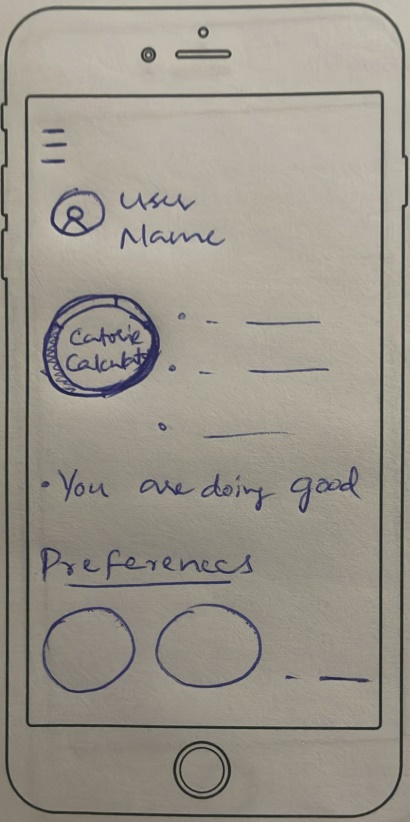 User
Name
Calorie
Calculato
• You are doing good
Preferences